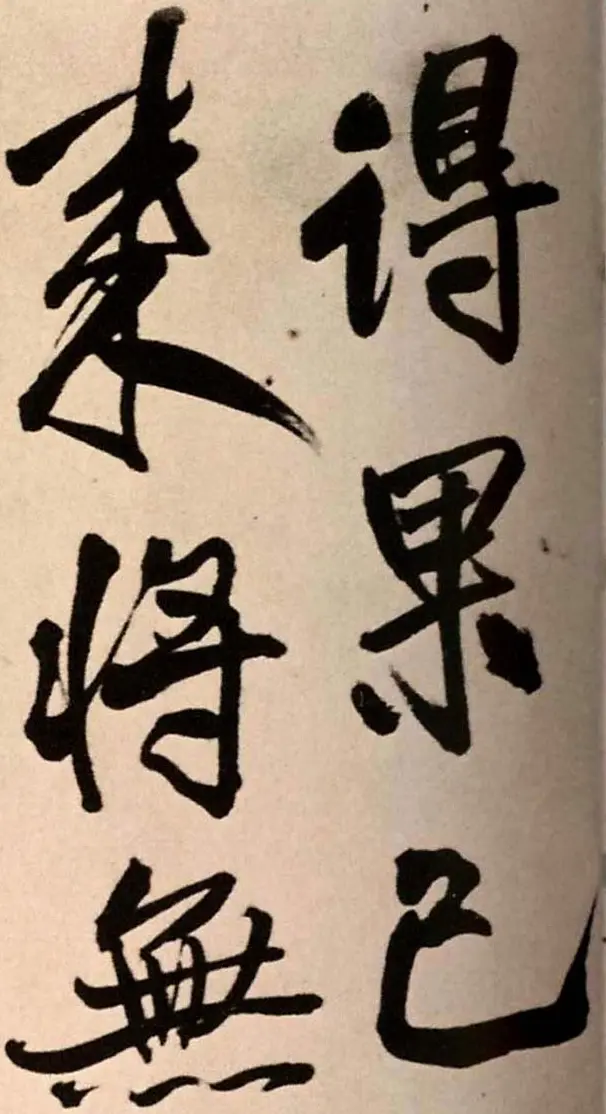 得果已
来将無